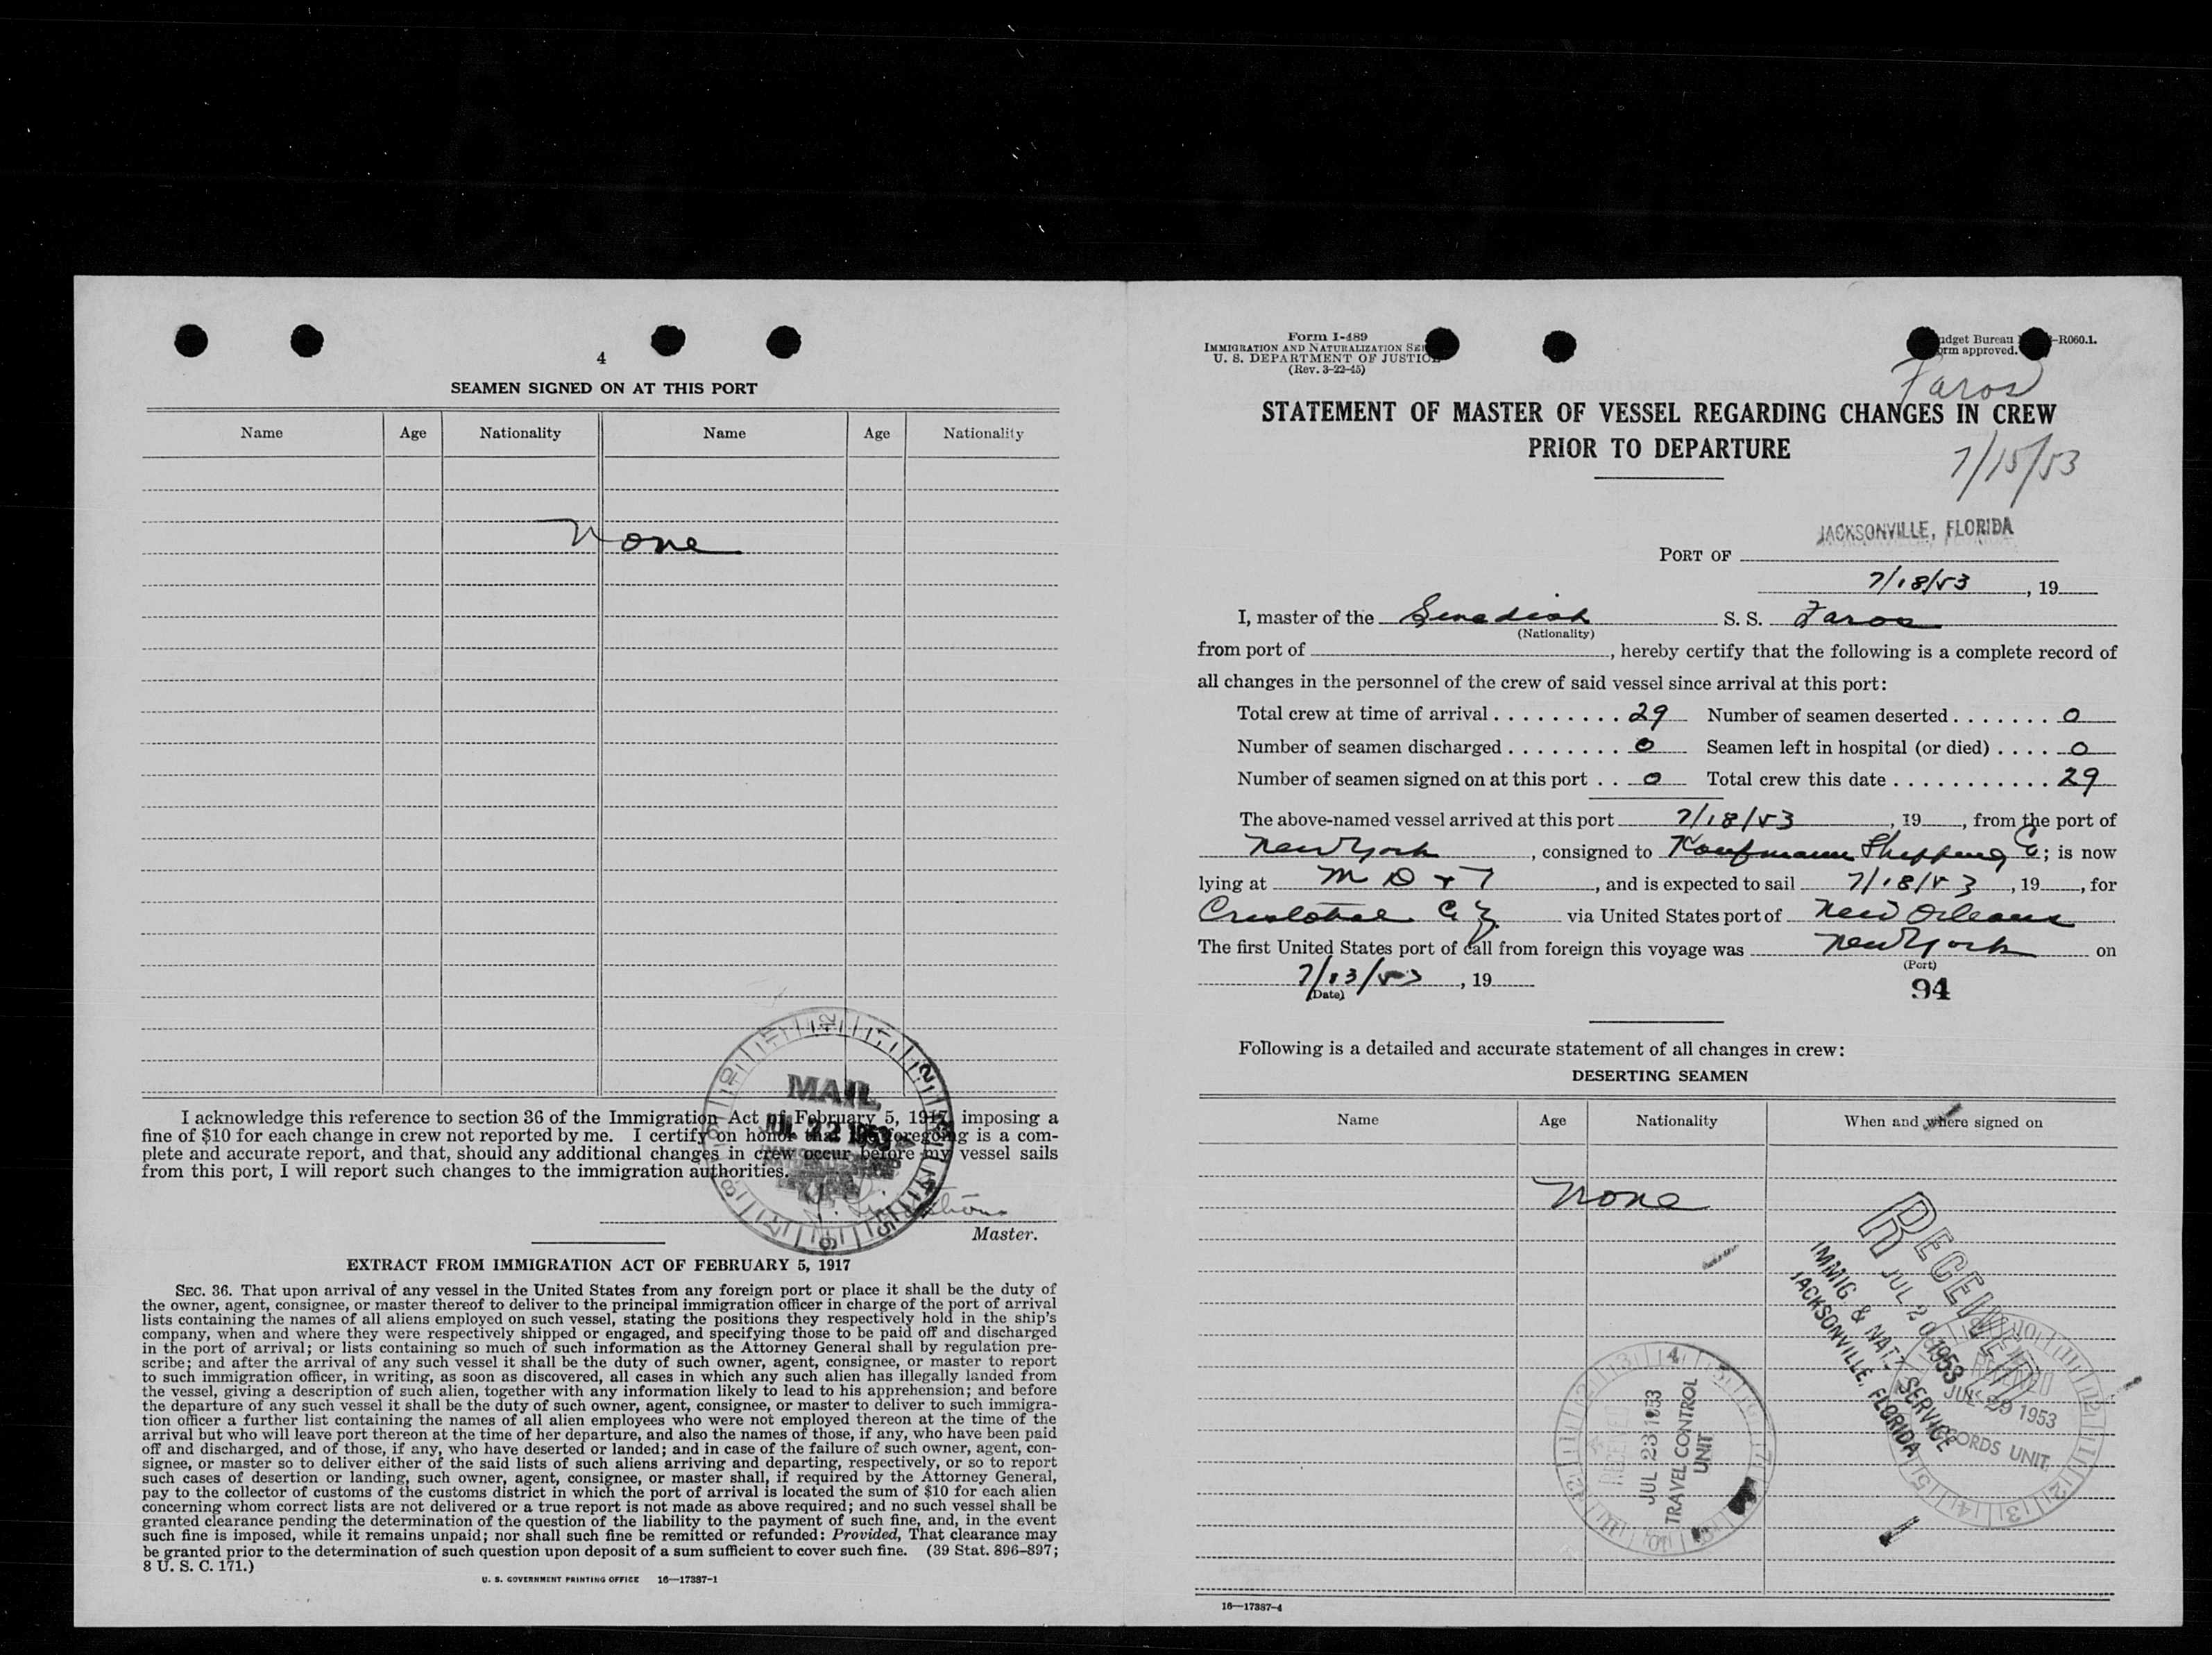 4
SEAMEN SIGNED ON AT THIS PORT
Name Age Nationality Name Age Nationality
None
I acknowledge this reference to section 36 of the Immigration Act of February 5, 1917, imposing a
fine of $10 for each change in crew not reported by me. I certify on honor that the foregoing is a com-
plete and accurate report, and that, should any additional changes in crew occur before my vessel sails
from this port, I will report such changes to the immigration authorities.
MAIL
JUL 22 1953
Master.
EXTRACT FROM IMMIGRATION ACT OF FEBRUARY 5, 1917
SEC. 36. That upon arrival of any vessel in the United States from any foreign port or place it shall be the duty of
the owner, agent, consignee, or master thereof to deliver to the principal immigration officer in charge of the port of arrival
lists containing the names of all aliens employed on such vessel, stating the positions they respectively hold in the ship's
company, when and where they were respectively shipped or engaged, and specifying those to be paid off and discharged
in the port of arrival; or lists containing so much of such information as the Attorney General shall by regulation pre-
scribe; and after the arrival of any such vessel it shall be the duty of such owner, agent, consignee, or master to report
to such immigration officer, in writing, as soon as discovered, all cases in which any such alien has illegally landed from
the vessel, giving a description of such alien, together with any information likely to lead to his apprehension; and before
the departure of any such vessel it shall be the duty of such owner, agent, consignee, or master to deliver to such immigra-
tion officer a further list containing the names of all alien employees who were not employed thereon at the time of the
arrival but who will leave port thereon at the time of her departure, and also the names of those, if any, who have been paid
off and discharged, and of those, if any, who have deserted or landed; and in case of the failure of such owner, agent, con-
signee, or master so to deliver either of the said lists of such aliens arriving and departing, respectively, or so to report
such cases of desertion or landing, such owner, agent, consignee, or master shall, if required by the Attorney General,
pay to the collector of customs of the customs district in which the port of arrival is located the sum of $10 for each alien
concerning whom correct lists are not delivered or a true report is not made as above required; and no such vessel shall be
granted clearance pending the determination of the question of the liability to the payment of such fine, and, in the event
such fine is imposed, while it remains unpaid; nor shall such fine be remitted or refunded: Provided, That clearance may
be granted prior to the determination of such question upon deposit of a sum sufficient to cover such fine. (39 Stat. 896–897;
8 U. S. C. 171.)
U. S. GOVERNMENT PRINTING OFFICE 16—17387-1
Form I-489
IMMIGRATION AND NATURALIZATION SER
U. S. DEPARTMENT OF JUSTICE
(Rev. 3-22-45)
udget Bureau -R060.1.
orm approved.
Faros
STATEMENT OF MASTER OF VESSEL REGARDING CHANGES IN CREW
PRIOR TO DEPARTURE
7/15/53
PORT OF JACKSONVILLE, FLORIDA
7/18/53, 19
I, master of the Swedish S. S. Faros
(Nationality)
from port of , hereby certify that the following is a complete record of
all changes in the personnel of the crew of said vessel since arrival at this port:
Total crew at time of arrival 29 Number of seamen deserted 0
Number of seamen discharged 0 Seamen left in hospital (or died) 0
Number of seamen signed on at this port 0 Total crew this date 29
The above-named vessel arrived at this port 7/18/53, 19, from the port of
New York, consigned to Kaufmann Shipping Co; is now
lying at M D & T, and is expected to sail 7/18/53, 19, for
Cristobal C Z via United States port of New Orleans
The first United States port of call from foreign this voyage was New York on
(Port)
7/13/53, 19
(Date)
94
Following is a detailed and accurate statement of all changes in crew:
DESERTING SEAMEN
Name Age Nationality When and where signed on
None
RECEIVED
JUL 20 1953
IMMIG & NATZ SERVICE
JACKSONVILLE, FLORIDA
RECEIVED
JUL 23 1953
TRAVEL CONTROL
UNIT
RECEIVED
JUL 29 1953
RECORDS UNIT
16—17387-4